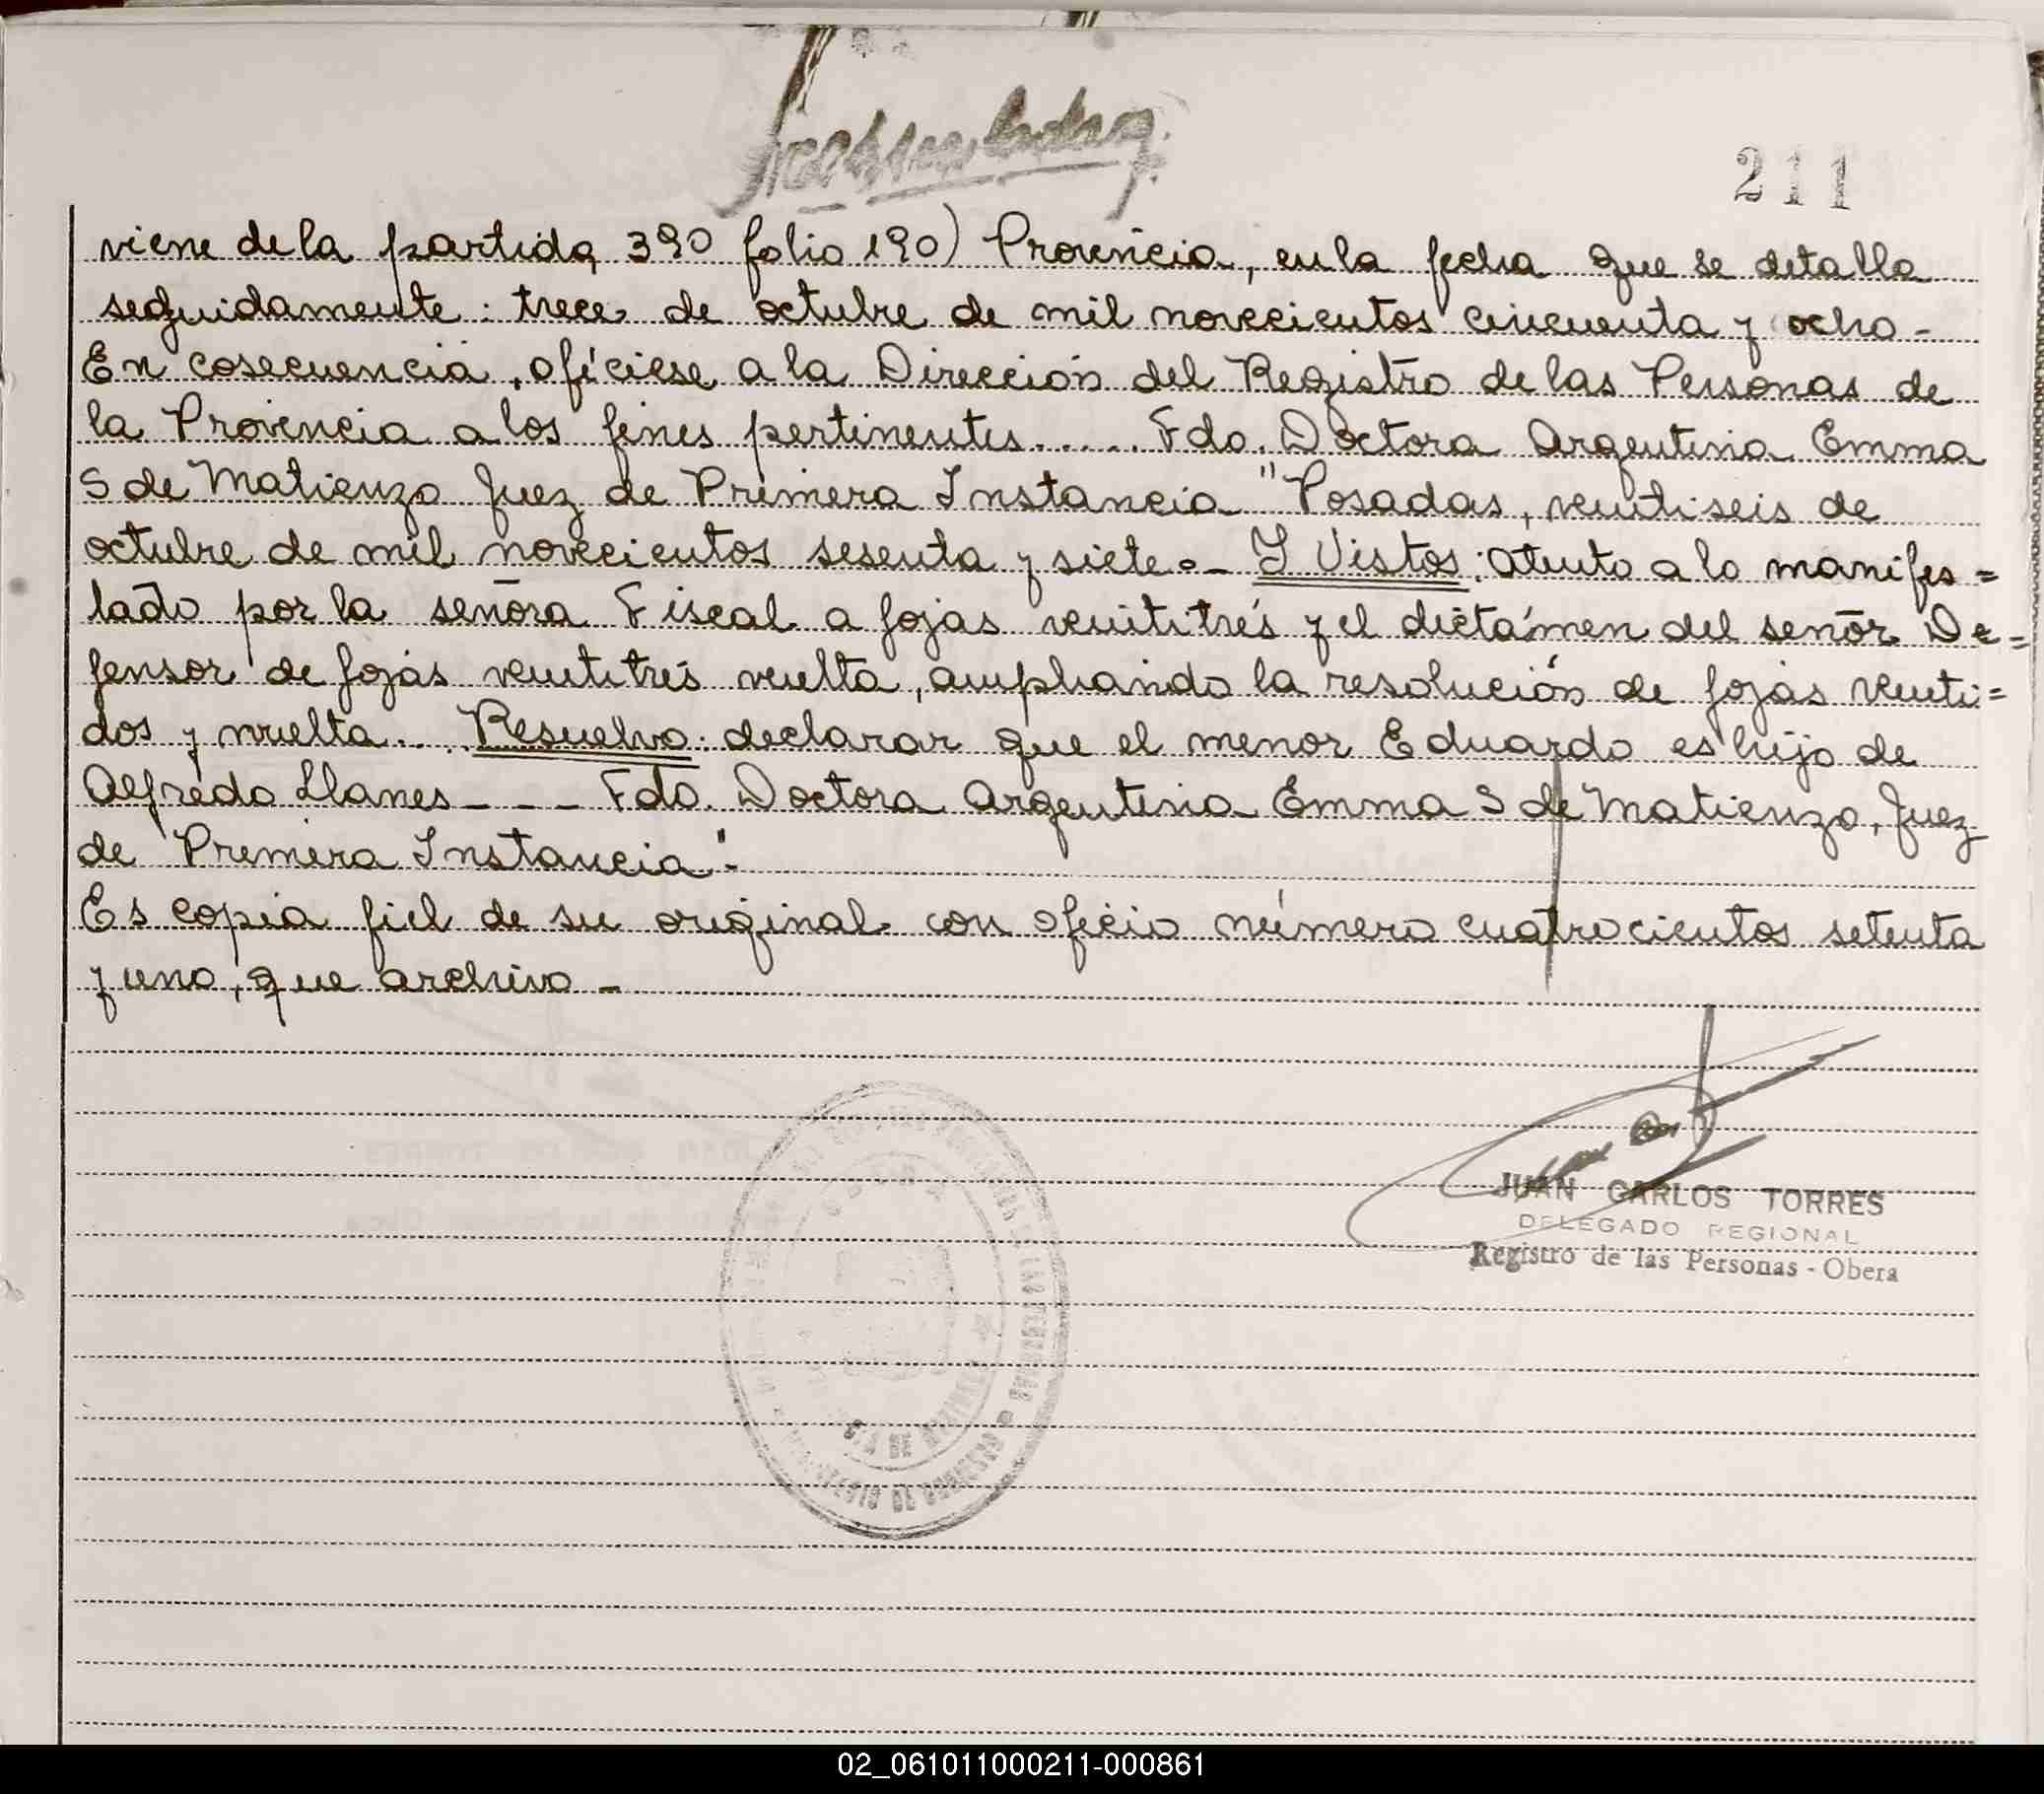 211
viene de la partida 390 folio 190) Provincia, en la fecha que se detalla
seguidamente: trece de octubre de mil novecientos cincuenta y ocho-
En cosecuencia, ofíciese a la Dirección del Registro de las Personas de
la Provincia a los fines pertinentes..... Fdo. Doctora Argentina Emma
S de Matienzo Juez de Primera Instancia "Posadas, veintiseis de
octubre de mil novecientos sesenta y siete.- Y Vistos: atento a lo manifes=
tado por la señora Fiscal a fojas veintitrés y el dictámen del señor De=
fensor de fojas veintitrés vuelta, ampliando la resolución de fojas veinti=
dos y vuelta.... Resuelvo: declarar que el menor Eduardo es hijo de
Alfredo Llanes - - - Fdo. Doctora Argentina Emma S de Matienzo, Juez
de Primera Instancia".-
Es copia fiel de su original con oficio número cuatrocientos setenta
y uno, que archivo -
JUAN CARLOS TORRES
DELEGADO REGIONAL
Registro de las Personas - Obera
02_061011000211-000861